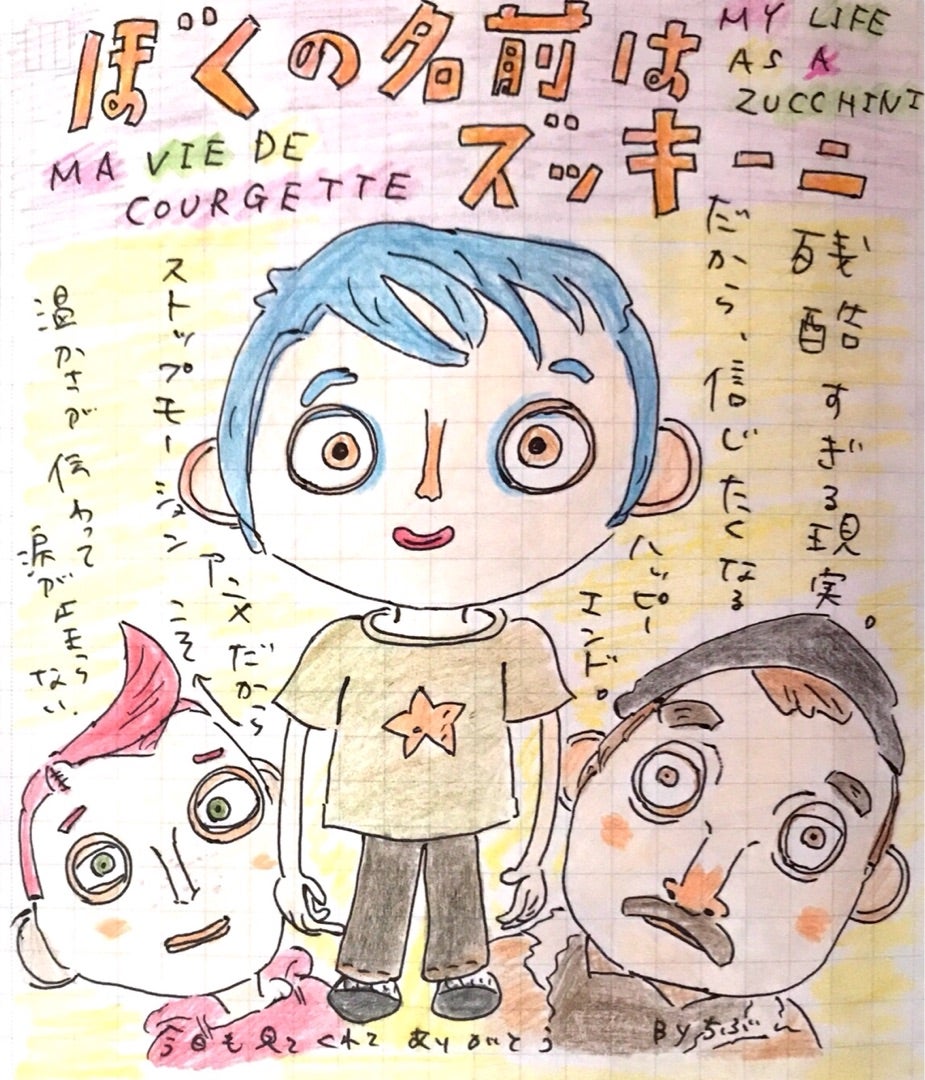 ぼくの名前は
ズッキーニ
MY LIFE
AS A
ZUCCHINI
MA VIE DE
COURGETTE
残酷すぎる現実。
だから、信じたくなる
ハッピー
エンド。
ストップモーション
アニメだから
こそ
温かさが伝わって
涙が止まら
ない.
今日も見てくれてありがとう
BY ちぶーん